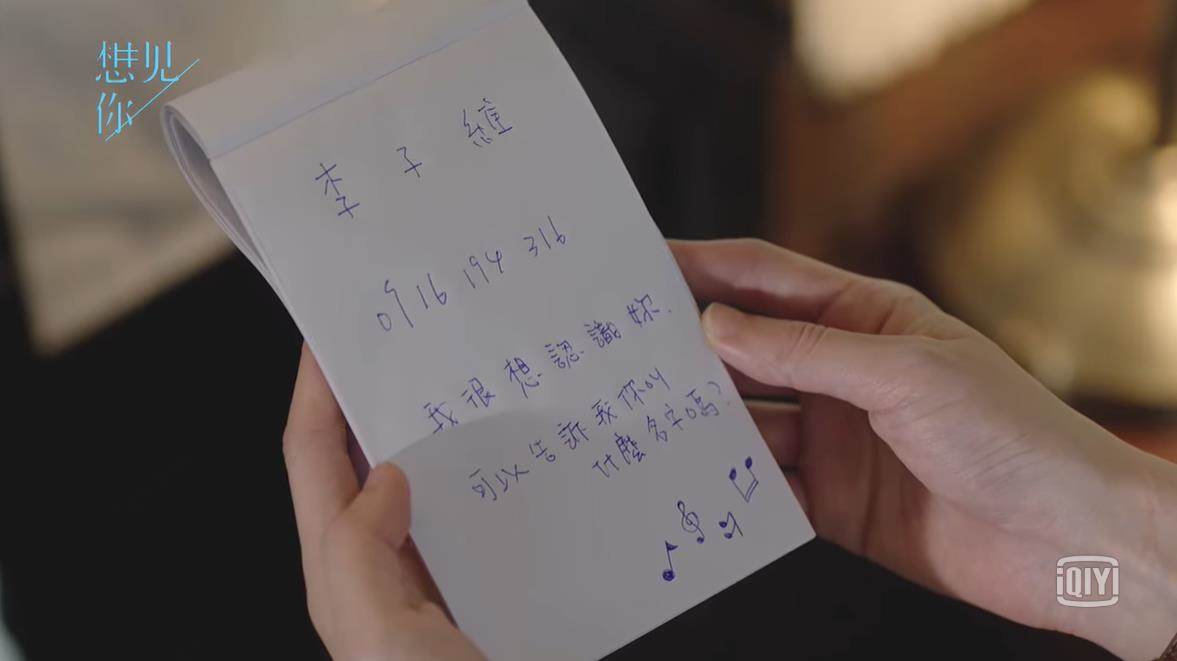 想见
你
李子維
0916 194 316
我很想認識妳.
可以告訴我你叫
什麼名字嗎?
iQIYI